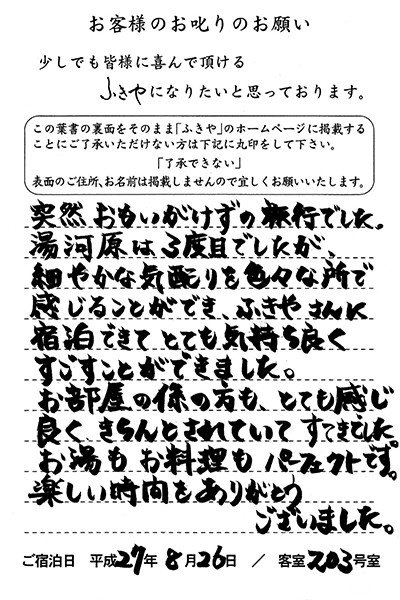 お客様のお叱りのお願い
少しでも皆様に喜んで頂ける
ふきやになりたいと思っております。
この葉書の裏面をそのまま「ふきや」のホームページに掲載する
ことにご了承いただけない方は下記に丸印をして下さい。
「了承できない」
表面のご住所、お名前は掲載しませんので宜しくお願いいたします。
突然おもいがけずの旅行でした。
湯河原は3度目でしたが、
細やかな気配りを色々な所で
感じることができ、ふきやさんに
宿泊できてとても気持ち良く
すごすことができました。
お部屋の係の方も、とても感じ
良く、きちんとされていてすてきでした。
お湯もお料理もパーフェクトです。
楽しい時間をありがとう
ございました。
ご宿泊日 平成27年8月26日 / 客室203号室